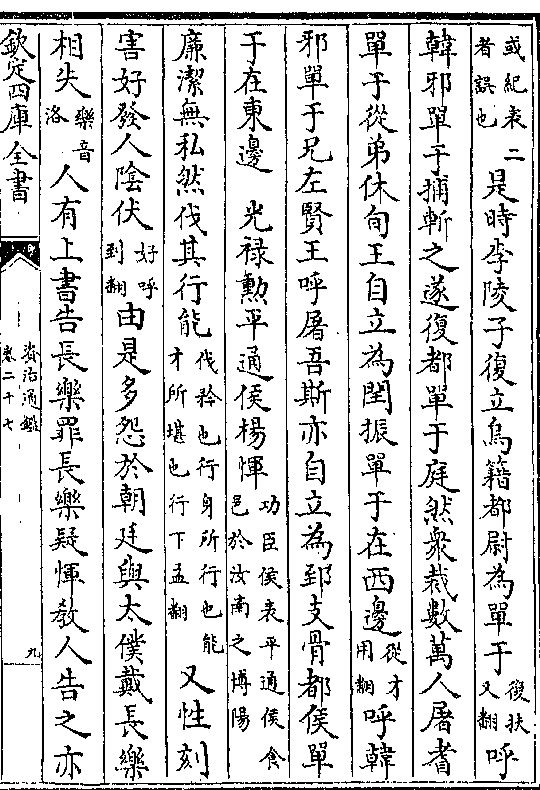 或紀表二者誤也是時李陵子復立烏籍都尉為單于復扶又翻呼
韓邪單于捕斬之遂復都單于庭然衆裁數萬人屠耆
單于從弟休旬王自立為閏振單于在西邊從才用翻呼韓
邪單于兄左賢王呼屠吾斯亦自立為郅支骨都侯單
于在東邊　光禄勲平通侯楊惲功臣侯表平通侯食邑於汝南之博陽
廉潔無私然伐其行能伐矜也行身所行也能才所堪也行下孟翻又性刻
害好發人陰伏好呼到翻由是多怨於朝廷與太僕戴長樂
相失樂音洛人有上書告長樂罪長樂疑惲教人告之亦
欽定四庫全書
資治通鑑
卷二十七
九